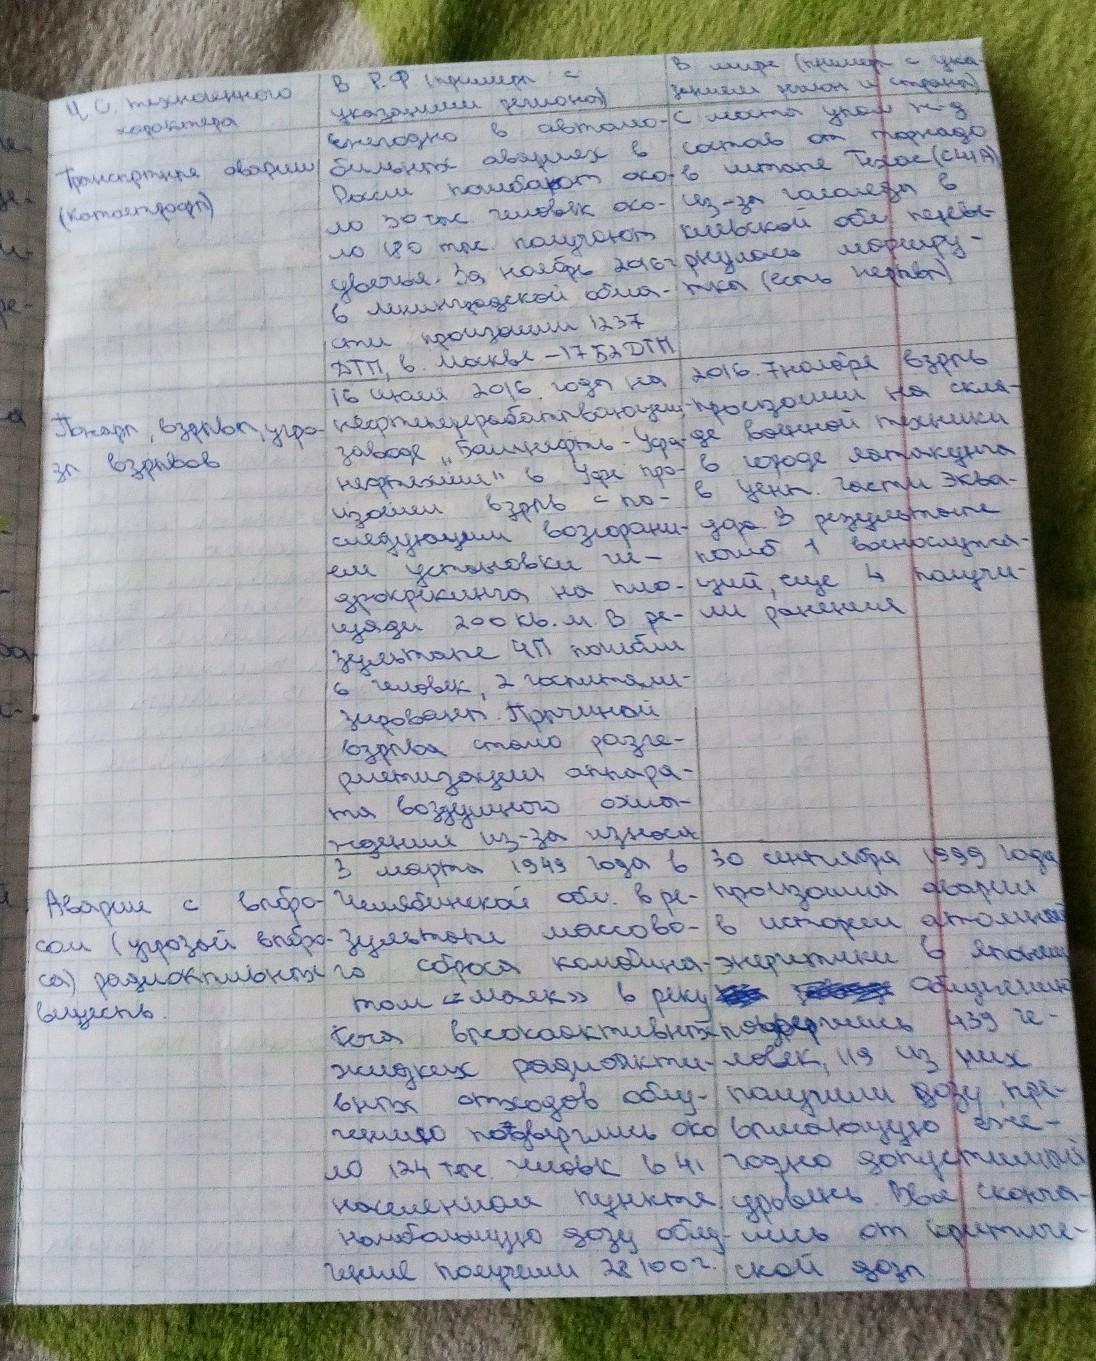 Ч.С. техногенного
характера
В Р.Ф (пример с
указанием региона)
В мире (пример с ука-
занием регион и страны)
Транспортные аварии
(катастрофы)
Ежегодно в автомо-
бильных авариях в
Росси погибают око-
ло 30 тыс. человек око-
ло 180 тыс. получают
увечья. За ноябрь 2016г
в Ленинградской обла-
сти произошли 1237
ДТП, в Москве - 1752 ДТП
С моста упал ж-д
состав от торнадо
в штате Техас (США)
Из-за гололеды в
киевской обл. перев-
рнулась маршру-
тка (есть жертвы)
Пожары, взрывы, угро-
зы взрывов
16 июля 2016 года на
нефтеперерабатывающим
заводе „Башнефть - Уфа-
нефтехим" в Уфе про-
изошел взрыв с по-
следующим возгорани-
ем установки ги-
дрокрекинга на пло-
щади 200 кв.м. В ре-
зультате ЧП погибли
6 человек, 2 госпитали-
зированы. Причиной
взрыва стало разге-
рметизация аппара-
та воздушного охла-
ждения из-за износа
2016. 7 ноября взрыв
произошли на скла-
де военной техники
в городе Латакунга
в цент. части Эква-
дора. В результате
погиб 1 военнослужа-
щий, еще 4 получи-
ли ранения
Аварии с выбро-
сом (угрозой выбро-
са) радиоктивных
веществ.
3 марта 1949 года в
Челябинской обл. в ре-
зультате массово-
го сброса комбина-
том «Маяк» в реку
Теча высокоактивных
жидких радиоакти-
вных отходов облу-
чению подверглись око
ло 124 тыс. человек в 41
населенном пункте
наибольшую дозу облу-
чение получили 28100 г.
30 сентября 1999 года
произошла авария
в истории атомной
энергетики в Японии
облучению
подверглись 439 че-
ловек, 119 из них
получили дозу, пре-
вышающую еже-
годно допустимый
уровень. Двое сконча-
лись от критиче-
ской дозы